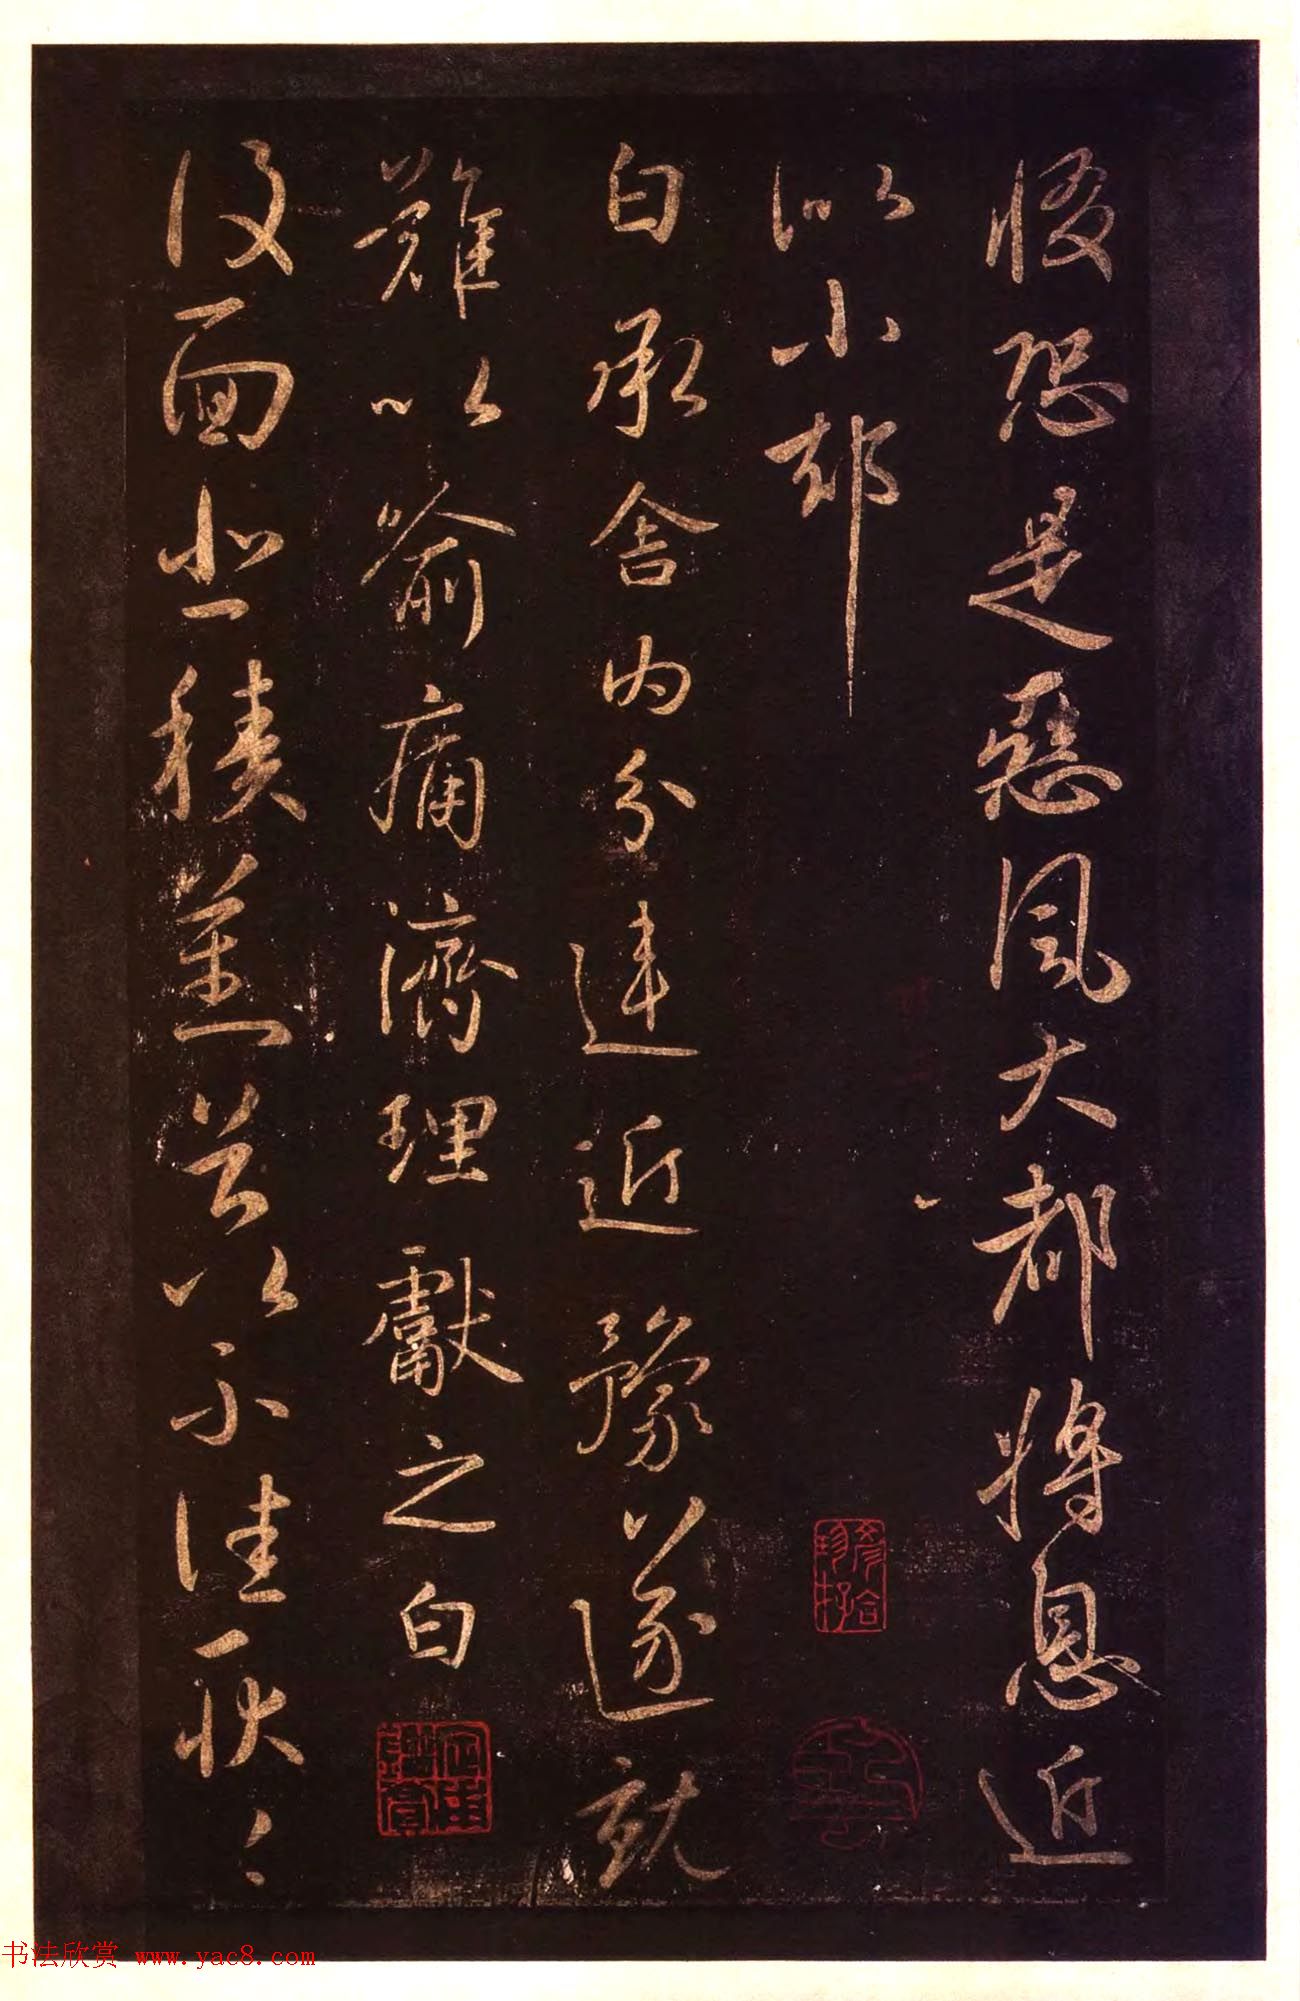 恐是惡風大都將息近
似小却
白承舍内分違近豫遂就
難以喻痛濟理獻之白
復面悲積苦以不佳耿々
书法欣赏 www.yac8.com